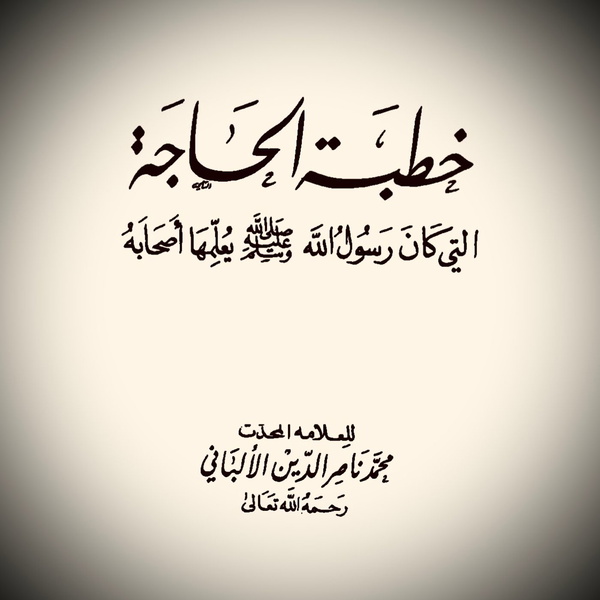 خطبة الحاجة
التي كَانَ رَسُولُ اللَّه ﷺ يُعلِّمهَا أَصَحَابَهُ
للعلامه المحدّث
محمَّد نَاصِر الدّين الألبَاني
رَحمَهُ اللَّه تعَالىٰ